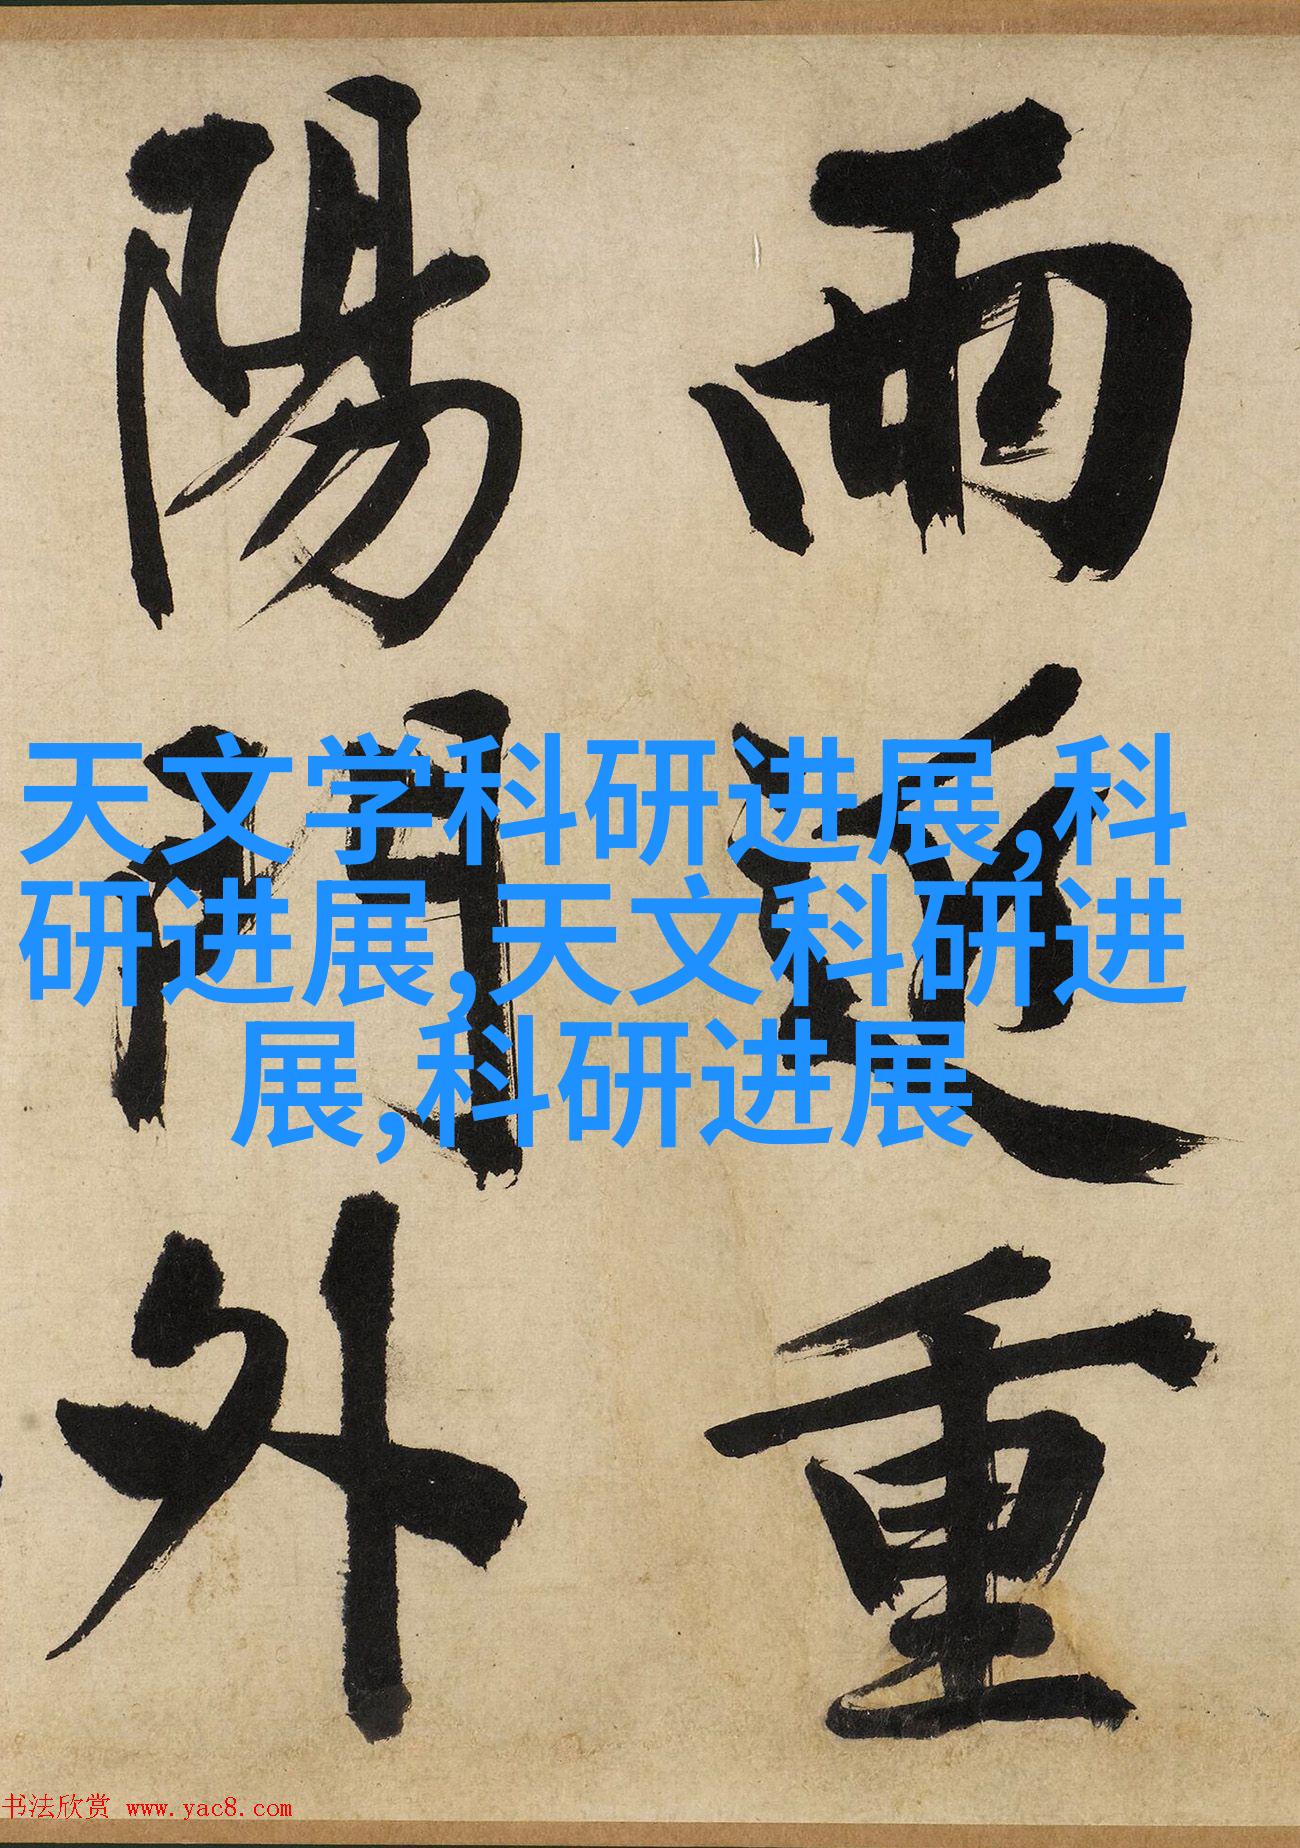 雨
重
陽門外
天文学科研进展,科
研进展,天文科研进
展,科研进展
书法欣赏 www.yac8.com